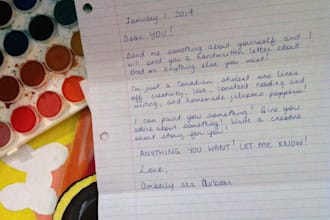 January 1, 2014
Dear YOU!
Send me something about yourself and I
will send you a handwritten letter about
that or anything else you want!
I'm just a Canadian student who lives
off creativity, love, constant reading and
writing, and homemade jalapeno poppers!
I can paint you something! Give you
advice about something! Write a creative
short story for you!
ANYTHING YOU WANT! LET ME KNOW!
Love,
aka